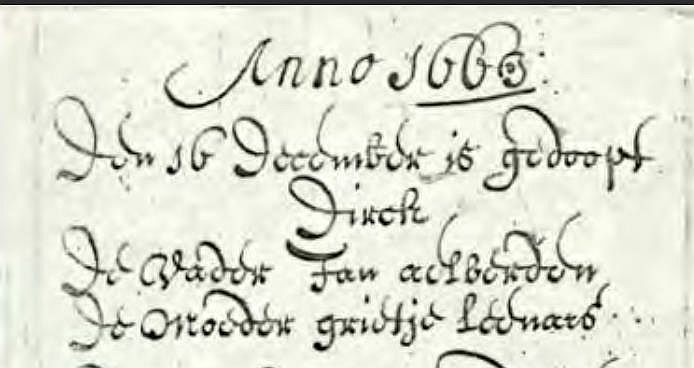 Anno 1663
Den 16 December is gedoopt
Dirck
De Vader Jan aelberden
De Moeder grietje Leenars